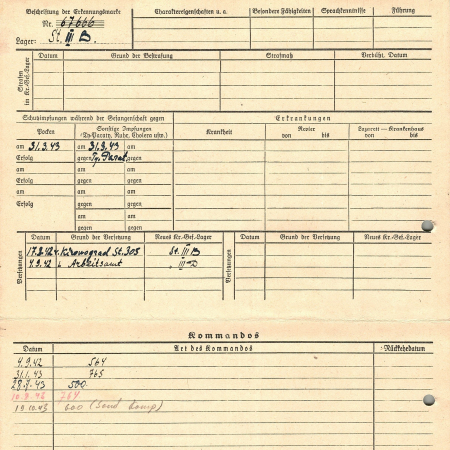 Beschriftung der Erkennungsmarke
Charaktereigenschaften u. a.
Besondere Fähigkeiten
Sprachkenntnisse
Führung
Nr. 67666
Lager: St. III B.
Strafen im Kr.-Gef.-Lager
Datum
Grund der Bestrafung
Strafmaß
Verbüßt, Datum
Schutzimpfungen während der Gefangenschaft gegen
Erkrankungen
Pocken
Sonstige Impfungen (Ty-Paraty, Ruhr, Cholera usw.)
Krankheit
Revier von bis
Lazarett — Krankenhaus von bis
am 31.3.43 am 31.3.43 am
Erfolg gegen Ty. Parat. gegen
am am am
Erfolg gegen gegen
am am am
Erfolg gegen gegen
am am
gegen gegen
am am
gegen gegen
Versetzungen
Datum
Grund der Versetzung
Neues Kr.-Gef.-Lager
Versetzungen
Datum
Grund der Versetzung
Neues Kr.-Gef.-Lager
17.8.42 v. Kirowograd St. 305 St. III B
4.9.42 Arbeitsamt " III D
Kommandos
Datum
Art des Kommandos
Rückkehrdatum
4.9.42 564
31.1.43 765
28.7.43 500
764
600 (Sond. Komp)